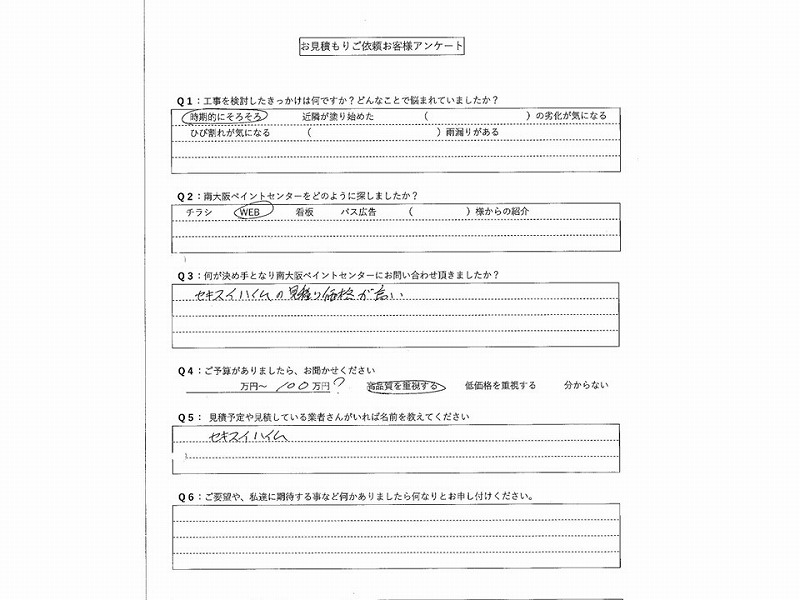 お見積もりご依頼お客様アンケート
Q1：工事を検討したきっかけは何ですか？どんなことで悩まれていましたか？
時期的にそろそろ 近隣が塗り始めた （ ）の劣化が気になる
ひび割れが気になる （ ）雨漏りがある
Q2：南大阪ペイントセンターをどのように探しましたか？
チラシ WEB 看板 バス広告 （ ）様からの紹介
Q3：何が決め手となり南大阪ペイントセンターにお問い合わせ頂きましたか？
セキスイハイムの見積り価格が高い
Q4：ご予算がありましたら、お聞かせください
万円〜 100万円？ 高品質を重視する 低価格を重視する 分からない
Q5： 見積予定や見積している業者さんがいれば名前を教えてください
セキスイハイム
Q6：ご要望や、私達に期待する事など何かありましたら何なりとお申し付けください。